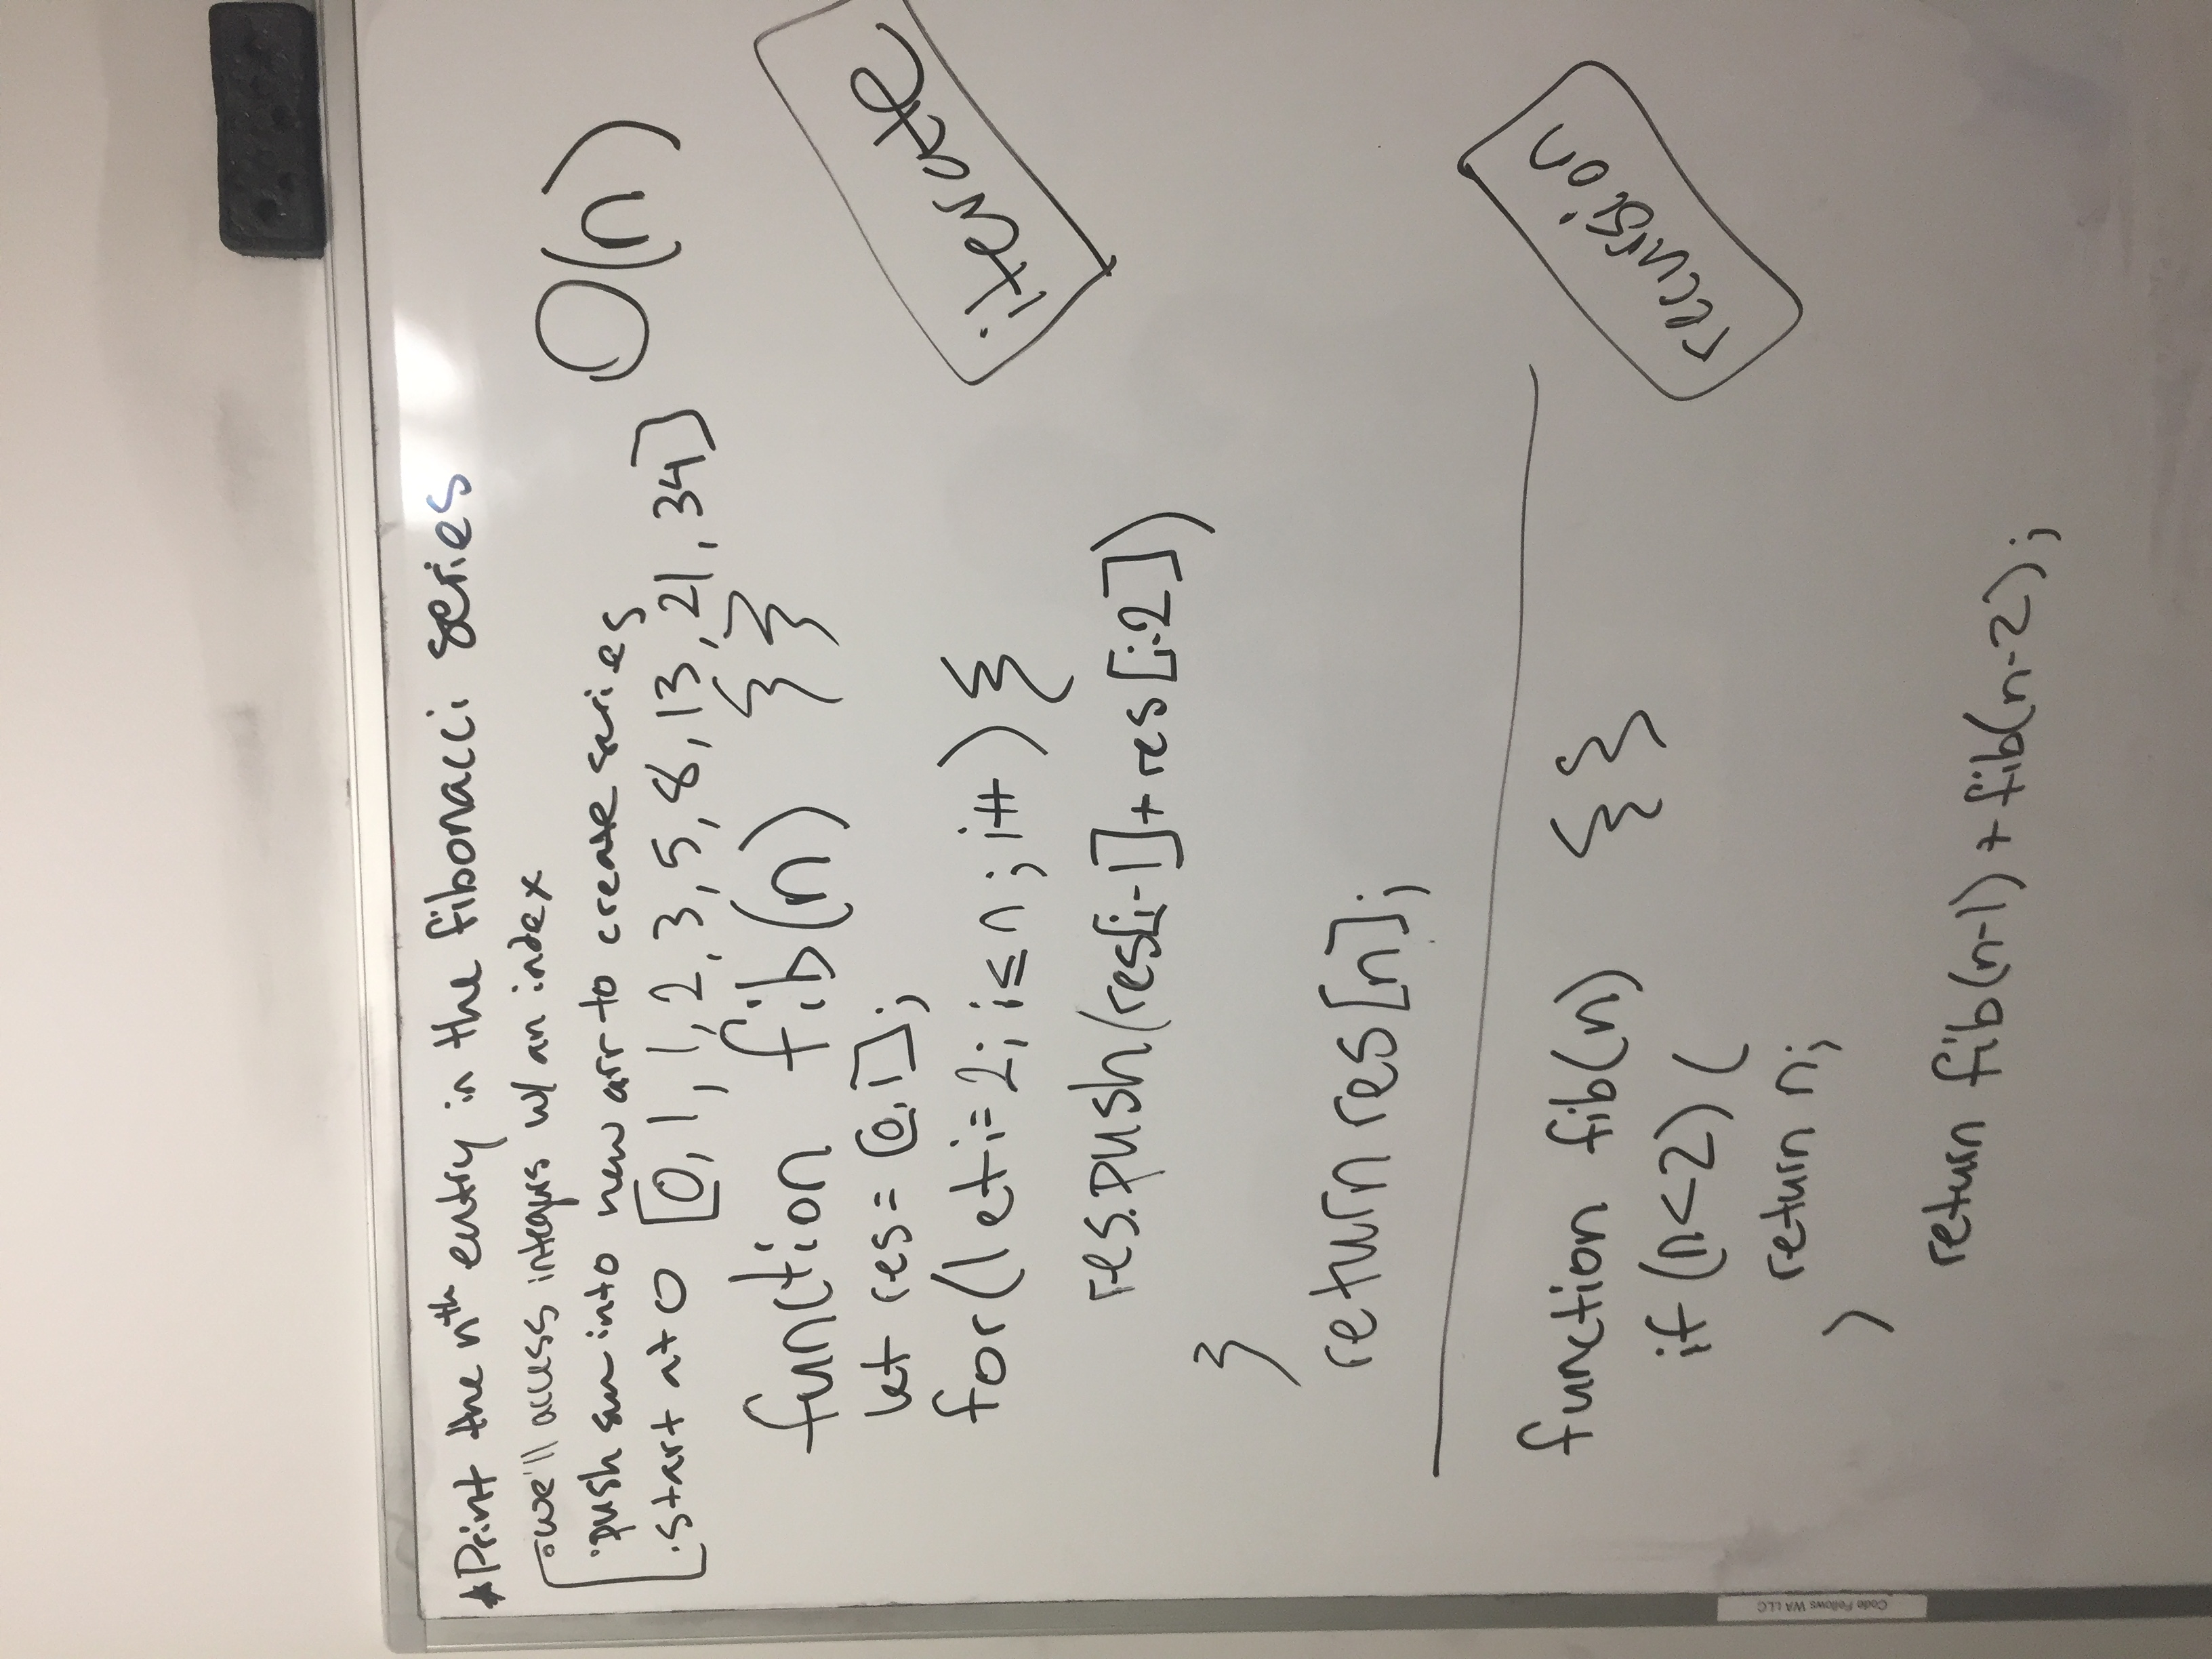 *Print the nth entry in the fibonacci series
we'll access integers w/ an index
push sum into new arr to create series
start at 0 [0, 1, 1, 2, 3, 5, 8, 13, 21, 34]
O(n)
function fib(n) {}
let res = [0,1];
for(let i=2; i≤n; i++){
res.push(res[i-1]+res[i-2])
}
return res[n];
iterate
function fib(n) {}
if (n<2) (
return n;
)
return fib(n-1) + fib(n-2);
recursion
Code Fellows WA LLC